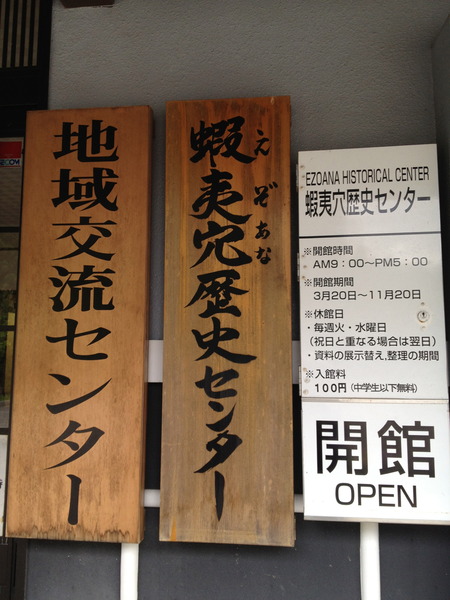 地域交流センター
蝦夷穴歴史センター
えぞあな
EZOANA HISTORICAL CENTER
蝦夷穴歴史センター
※開館時間
AM9:00~PM5:00
※開館期間
3月20日~11月20日
※休館日
・毎週火・水曜日
(祝日と重なる場合は翌日)
・資料の展示替え.整理の期間
※入館料
100円(中学生以下無料)
開館
OPEN